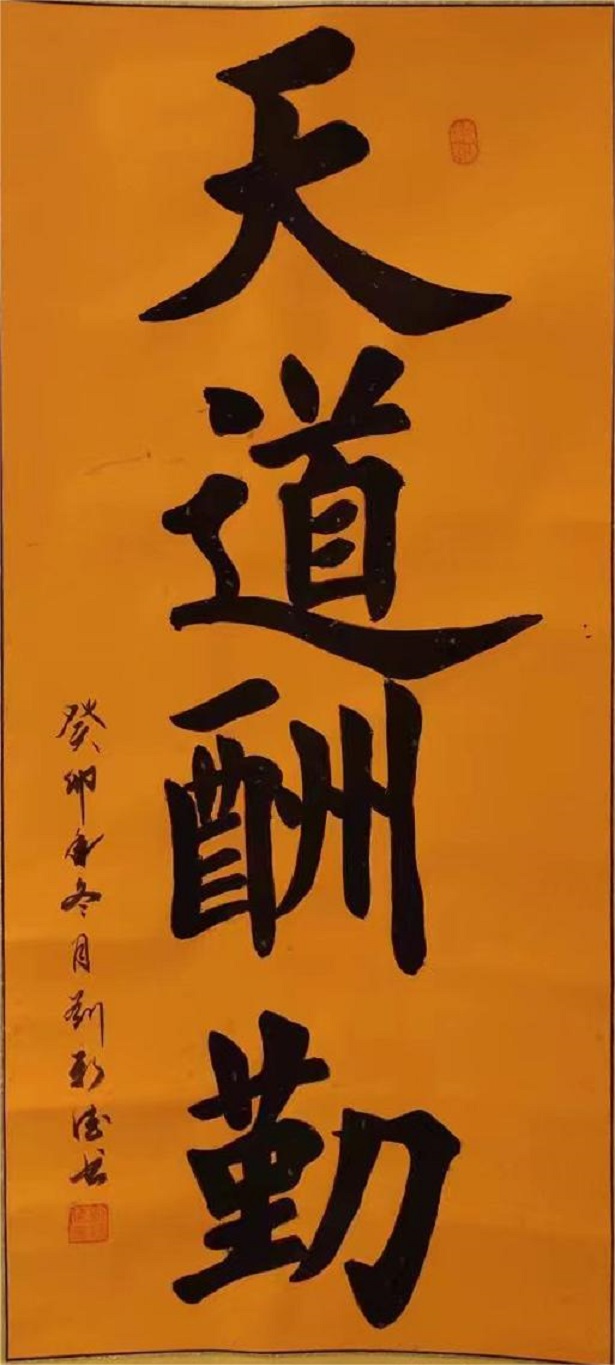 天道酬勤
癸卯年冬月刘新德书